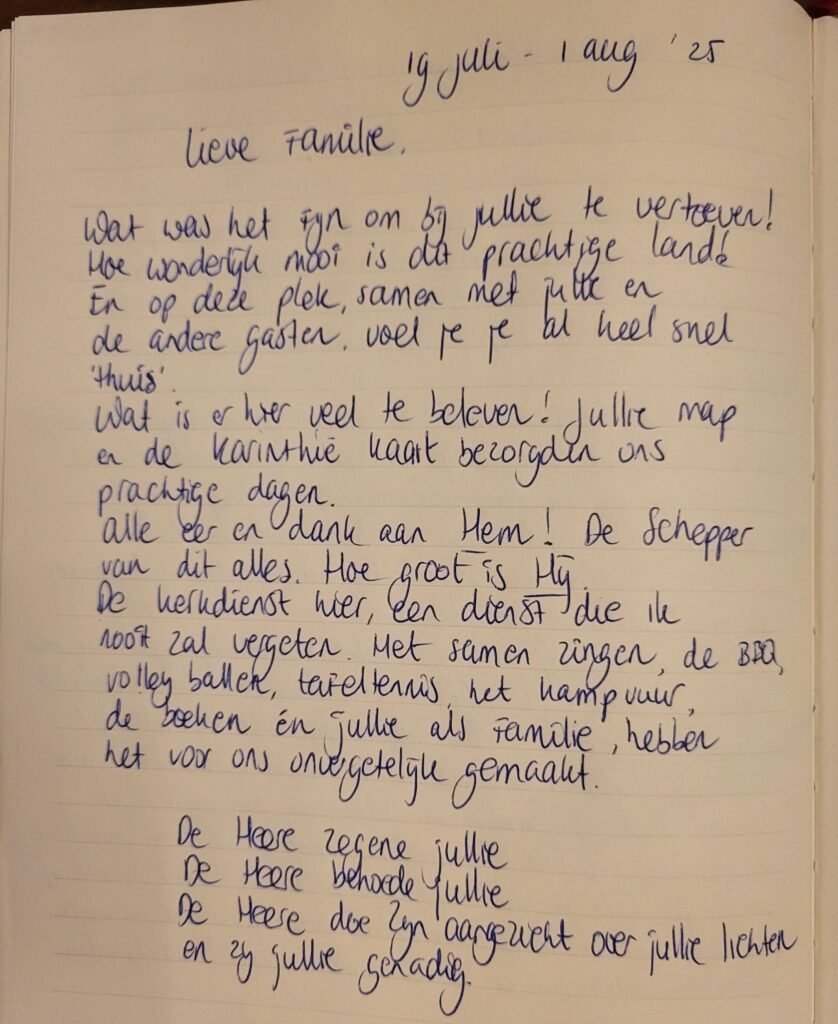 19 juli - 1 aug '25
Lieve Familie,
Wat was het fijn om bij jullie te vertoeven!
Hoe wonderlijk mooi is dit prachtige land!
En op deze plek, samen met jullie en
de andere gasten, voel je je al heel snel
'thuis'.
Wat is er hier veel te beleven! Jullie map
en de Karinthië kaart bezorgden ons
prachtige dagen.
Alle eer en dank aan Hem! De Schepper
van dit alles. Hoe groot is Hij.
De kerkdienst hier, een dienst die ik
nooit zal vergeten. Het samen zingen, de BBQ,
volley ballen, tafeltennis, het kampvuur,
de boeken én jullie als Familie, hebben
het voor ons onvergetelijk gemaakt.
De Heere zegene jullie
De Heere behoede jullie
De Heere doe Zijn aangezicht over jullie lichten
en zij jullie genadig.